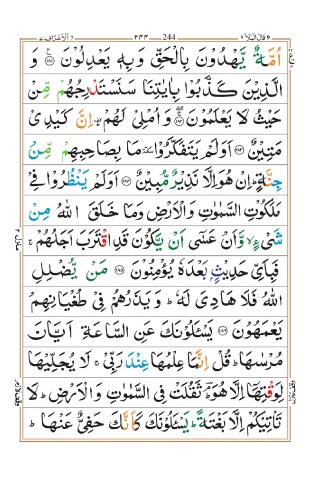 قال الملا ٩ ٢٤٤ 244 الاعراف ٧
اُمَّةٌ يَّهْدُوْنَ بِالْحَقِّ وَبِهٖ يَعْدِلُوْنَ ۝ وَ
الَّذِيْنَ كَذَّبُوْا بِاٰيٰتِنَا سَنَسْتَدْرِجُهُمْ مِّنْ
حَيْثُ لَا يَعْلَمُوْنَ ۝ وَاُمْلِيْ لَهُمْ ؕ اِنَّ كَيْدِيْ
مَتِيْنٌ ۝ اَوَلَمْ يَتَفَكَّرُوْا مَا بِصَاحِبِهِمْ مِّنْ
جِنَّةٍ ؕ اِنْ هُوَ اِلَّا نَذِيْرٌ مُّبِيْنٌ ۝ اَوَلَمْ يَنْظُرُوْا فِيْ
مَلَكُوْتِ السَّمٰوٰتِ وَالْاَرْضِ وَمَا خَلَقَ اللّٰهُ مِنْ
شَيْءٍ ۙ وَّاَنْ عَسٰٓى اَنْ يَّكُوْنَ قَدِ اقْتَرَبَ اَجَلُهُمْ ۚ
فَبِاَيِّ حَدِيْثٍۭ بَعْدَهٗ يُؤْمِنُوْنَ ۝ مَنْ يُّضْلِلِ
اللّٰهُ فَلَا هَادِيَ لَهٗ ؕ وَيَذَرُهُمْ فِيْ طُغْيَانِهِمْ
يَعْمَهُوْنَ ۝ يَسْـَٔلُوْنَكَ عَنِ السَّاعَةِ اَيَّانَ
مُرْسٰىهَا ؕ قُلْ اِنَّمَا عِلْمُهَا عِنْدَ رَبِّيْ ۚ لَا يُجَلِّيْهَا
لِوَقْتِهَآ اِلَّا هُوَ ؔۘ ثَقُلَتْ فِي السَّمٰوٰتِ وَالْاَرْضِ ؕ لَا
تَاْتِيْكُمْ اِلَّا بَغْتَةً ؕ يَسْـَٔلُوْنَكَ كَاَنَّكَ حَفِيٌّ عَنْهَا ؕ